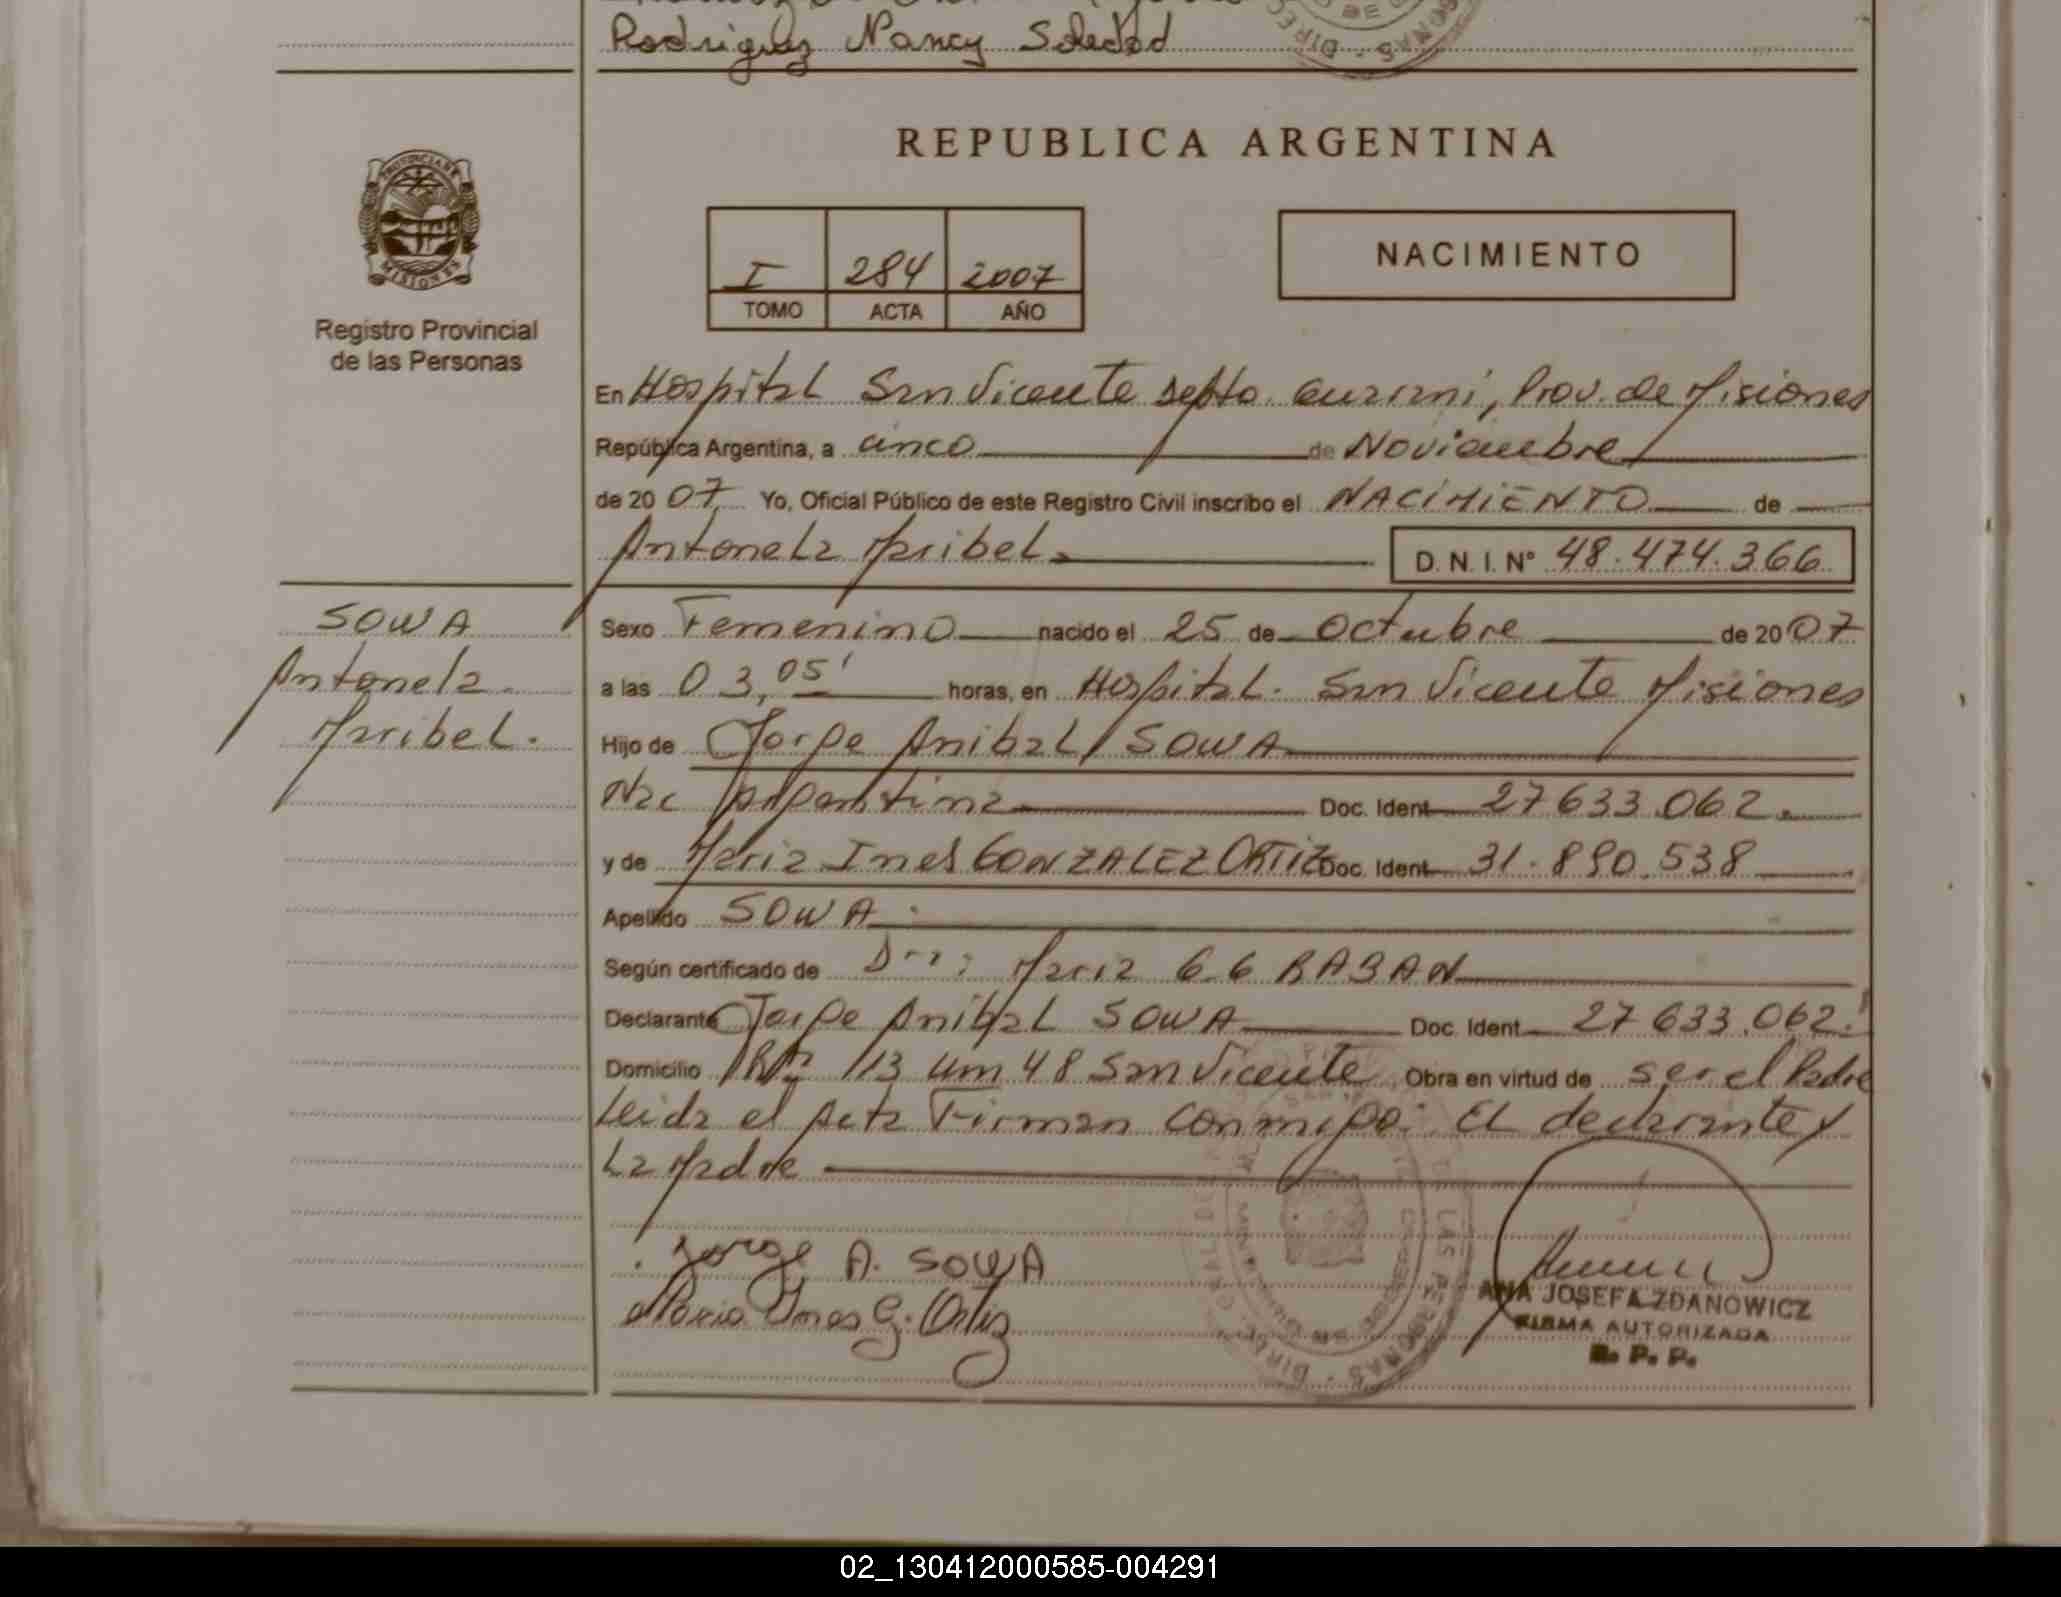 Rodriguez Nancy Soledad
REPUBLICA ARGENTINA
PROVINCIA DE
MISIONES
Registro Provincial
de las Personas
I 284 2007
TOMO ACTA AÑO
NACIMIENTO
En Hospital San Vicente depto. Guarani, Prov. de Misiones
República Argentina, a cinco de Noviembre
de 2007 Yo, Oficial Público de este Registro Civil inscribo el NACIMIENTO de
Antonela Maribel D.N.I. Nº 48.474.366
SOWA
Antonela
Maribel.
Sexo Femenino nacido el 25 de Octubre de 2007
a las 03,05' horas, en Hospital. San Vicente Misiones
Hijo de Jorge Anibal SOWA
Nac Argentina Doc. Ident 27633.062.
y de Maria Ines GONZALEZ ORTIZ Doc. Ident 31.890.538
Apellido SOWA.
Según certificado de Dra: Maria
Declarante Jorge Anibal SOWA Doc. Ident 27633.062.
Domicilio 113 Km 48 San Vicente Obra en virtud de ser el Padre
Leida el Acta Firman conmigo: El declarante y
La Madre
Jorge A. SOWA
Maria Ines G. Ortiz
ANA JOSEFA ZDANOWICZ
FIRMA AUTORIZADA
R. P. P.
02_130412000585-004291